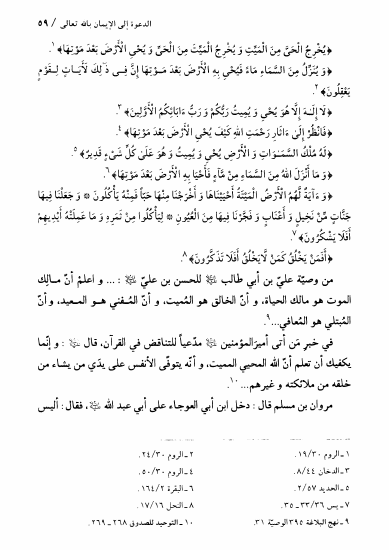 الدعوة إلى الإيمان بالله تعالى / ٥٩
﴿يُخْرِجُ الْحَيَّ مِنَ الْمَيِّتِ وَ يُخْرِجُ الْمَيِّتَ مِنَ الْحَيِّ وَ يُحْيِ الْأَرْضَ بَعْدَ مَوْتِهَا﴾١.
﴿وَ يُنَزِّلُ مِنَ السَّمَاءِ مَاءً فَيُحْيِ بِهِ الْأَرْضَ بَعْدَ مَوْتِهَا إِنَّ فِى ذَ ٰلِكَ لَأَيَاتٍ لِقَوْمٍ
يَعْقِلُونَ﴾٢.
﴿لَا إِلَـٰهَ إِلَّا هُوَ يُحْيِ وَ يُمِيتُ رَبُّكُمْ وَ رَبُّ ءَابَائِكُمُ الْأَوَّلِينَ﴾٣.
﴿فَانْظُرْ إِلَىٰ ءَاثَارِ رَحْمَتِ اللهِ كَيْفَ يُحْيِ الْأَرْضَ بَعْدَ مَوْتِهَا﴾٤.
﴿لَهُ مُلْكُ السَّمَـٰوَاتِ وَ الْأَرْضِ يُحْيِ وَ يُمِيتُ وَ هُوَ عَلَىٰ كُلِّ شَىْءٍ قَدِيرٌ﴾٥.
﴿وَ مَا أَنْزَلَ اللهُ مِنَ السَّمَاءِ مِنْ مَّاءٍ فَأَحْيَا بِهِ الْأَرْضَ بَعْدَ مَوْتِهَا﴾٦.
﴿وَ ءَايَةٌ لَّهُمُ الْأَرْضُ الْمَيْتَةُ أَحْيَيْنَاهَا وَ أَخْرَجْنَا مِنْهَا حَبًّا فَمِنْهُ يَأْكُلُونَ * وَ جَعَلْنَا فِيهَا
جَنَّاتٍ مِّنْ نَخِيلٍ وَ أَعْنَابٍ وَ فَجَّرْنَا فِيهَا مِنَ الْعُيُونِ * لِيَأْكُلُوا مِنْ ثَمَرِهِ وَ مَا عَمِلَتْهُ أَيْدِيهِمْ
أَفَلَا يَشْكُرُونَ﴾٧.
﴿أَفَمَنْ يَخْلُقُ كَمَنْ لَّا يَخْلُقُ أَفَلَا تَذَكَّرُونَ﴾٨.
من وصيّة عليّ بن أبي طالب ﷺ للحسن بن عليّ ﷺ: ... و اعلمْ أنّ مـالك
الموت هو مالك الحياة، و أنّ الخالق هو المُميت، و أنّ المُـفني هـو المـعيد، و أنّ
المُبتلي هو المُعافي...٩.
في خبر مَن أتى أميرَالمؤمنين ﷺ مدّعياً للتناقض في القرآن، قال ﷺ: و إنّما
يكفيك أن تعلم أنّ الله المحيي المميت، و أنـّه يتوفّى الأنفس على يدَي من يشاء من
خلقه من ملائكته و غيرهم...١٠.
مروان بن مسلم قال: دخل ابن أبي العوجاء على أبي عبد الله ﷺ، فقال: أليس
١ـ الروم ١٩/٣٠.
٢ـ الروم ٢٤/٣٠.
٣ـ الدخان ٨/٤٤.
٤ـ الروم ٥٠/٣٠.
٥ـ الحديد ٢/٥٧.
٦ـ البقرة ١٦٤/٢.
٧ـ يس ٣٣/٣٦ـ ٣٥.
٨ـ النحل ١٧/١٦.
٩ـ نهج البلاغة ٣٩٥ الوصيّة ٣١.
١٠ـ التوحيد للصدوق ٢٦٨ـ ٢٦٩.